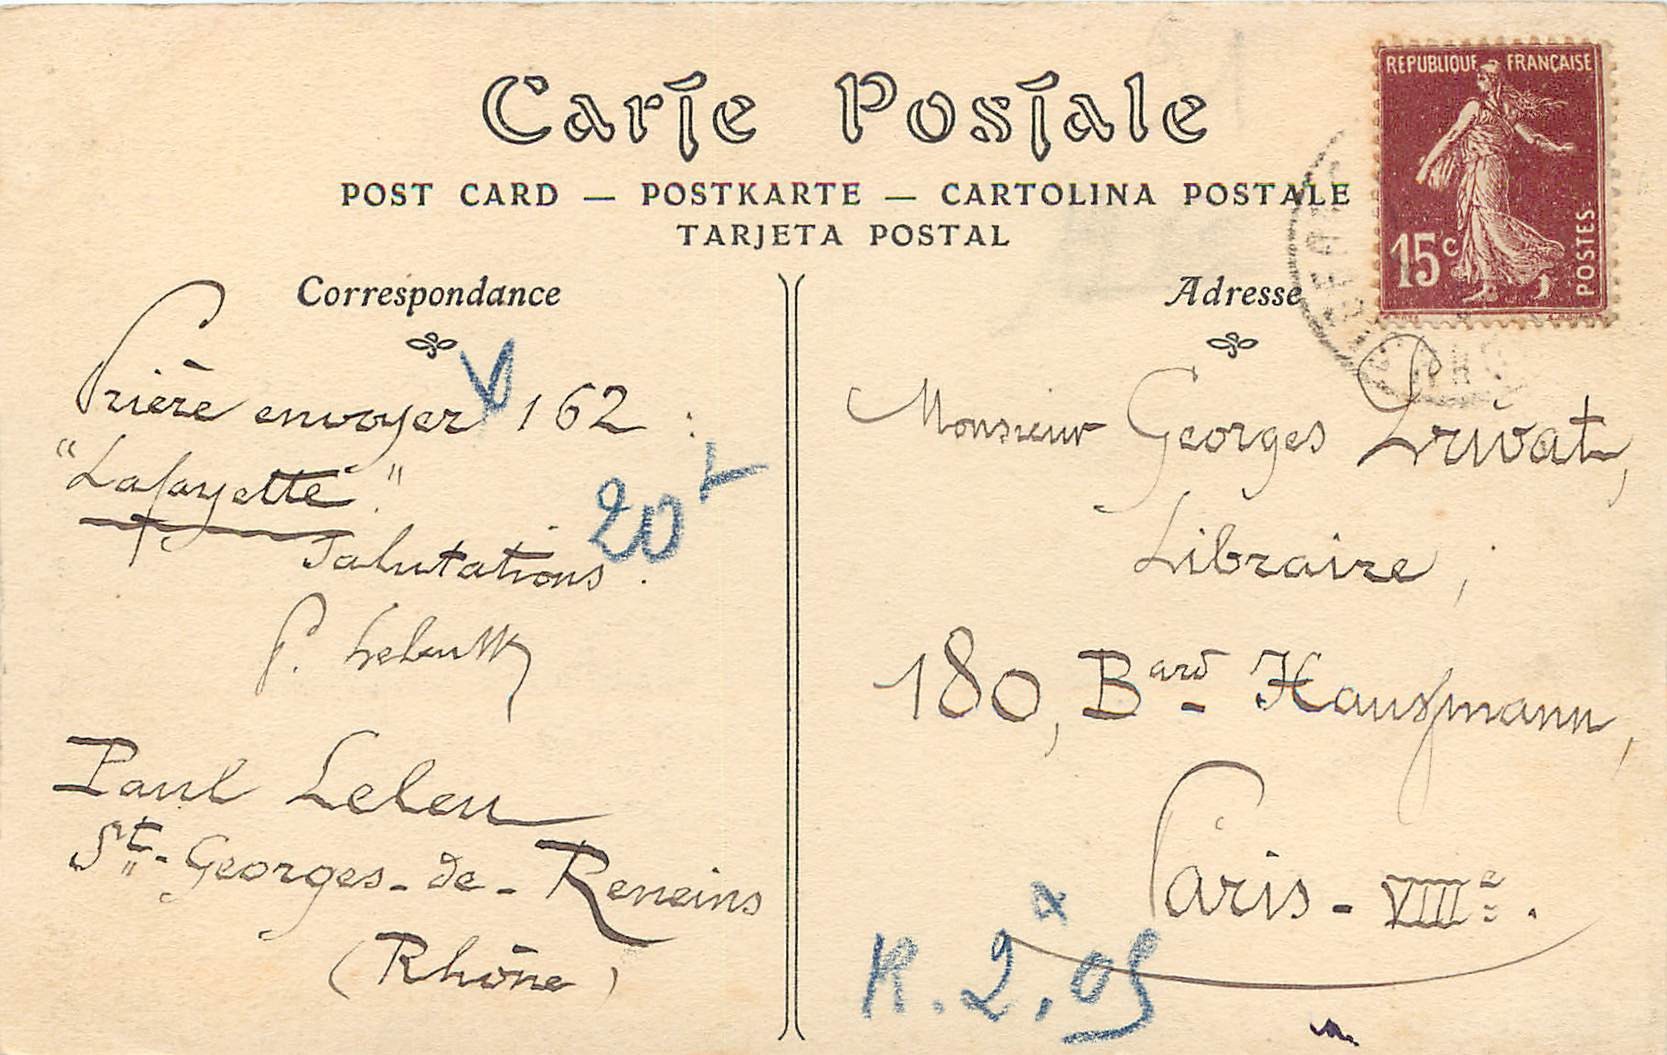 Carte Postale
POST CARD — POSTKARTE — CARTOLINA POSTALE
TARJETA POSTAL
REPUBLIQUE FRANÇAISE
15c
POSTES
Correspondance
Prière envoyer V 162 :
"Lafayette."
Salutations.
P.
Paul Leleu
St-Georges-de-Reneins
(Rhône)
20
Adresse
Monsieur Georges Privat,
Libraire,
180, Bard Hausfmann,
Paris-VIIIe.
R. 2,05